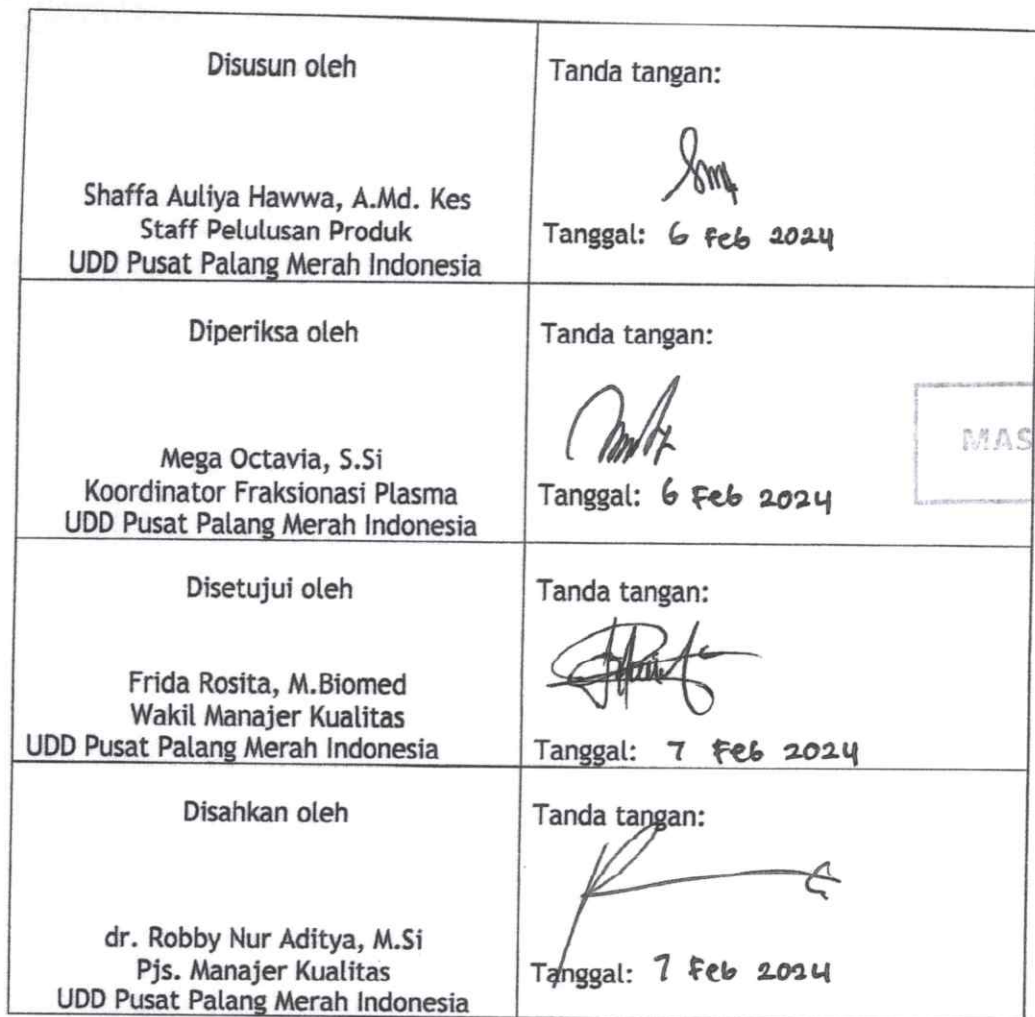 Disusun oleh
Shaffa Auliya Hawwa, A.Md. Kes
Staff Pelulusan Produk
UDD Pusat Palang Merah Indonesia
Tanda tangan:
Tanggal: 6 Feb 2024
Diperiksa oleh
Mega Octavia, S.Si
Koordinator Fraksionasi Plasma
UDD Pusat Palang Merah Indonesia
Tanda tangan:
Tanggal: 6 Feb 2024
MAS
Disetujui oleh
Frida Rosita, M.Biomed
Wakil Manajer Kualitas
UDD Pusat Palang Merah Indonesia
Tanda tangan:
Tanggal: 7 Feb 2024
Disahkan oleh
dr. Robby Nur Aditya, M.Si
Pjs. Manajer Kualitas
UDD Pusat Palang Merah Indonesia
Tanda tangan:
Tanggal: 7 Feb 2024